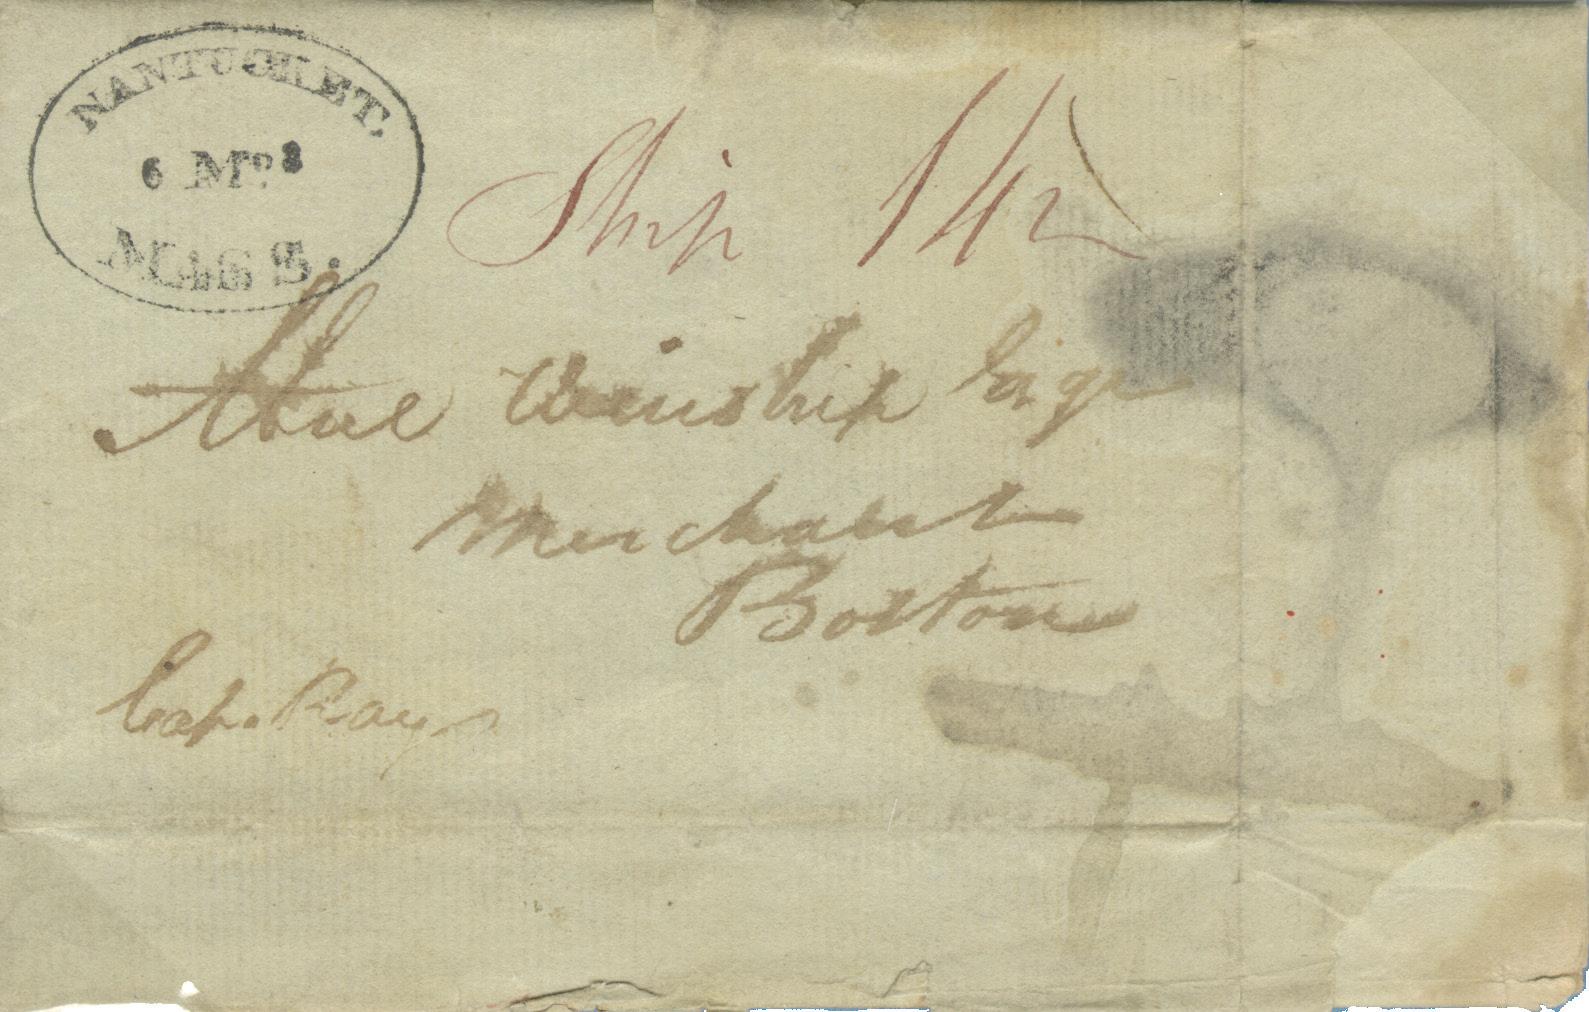 NANTUCKET.
6 Mo 8
MASS.
Ship 142
Winship Esqr
Merchant
Boston
Cap. Rays